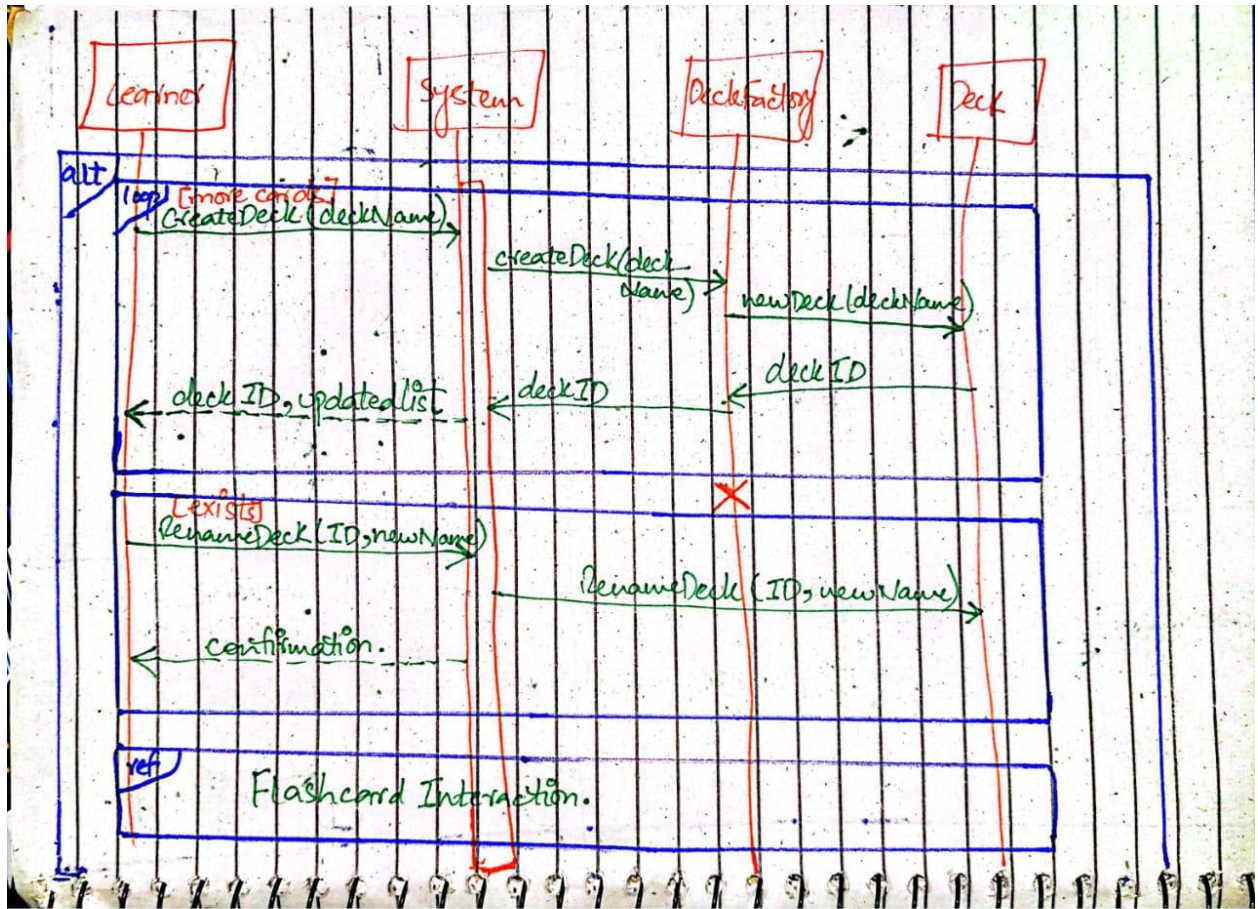 Learner
System
DeckFactory
Deck
alt
loop
[more cards]
CreateDeck (deckName)
createDeck(deck
Name)
newDeck(deckName)
deckID
deckID
deckID, updatedlist
[exists]
RenameDeck(ID, newName)
RenameDeck (ID, newName)
confirmation.
ref
Flashcard Interaction.